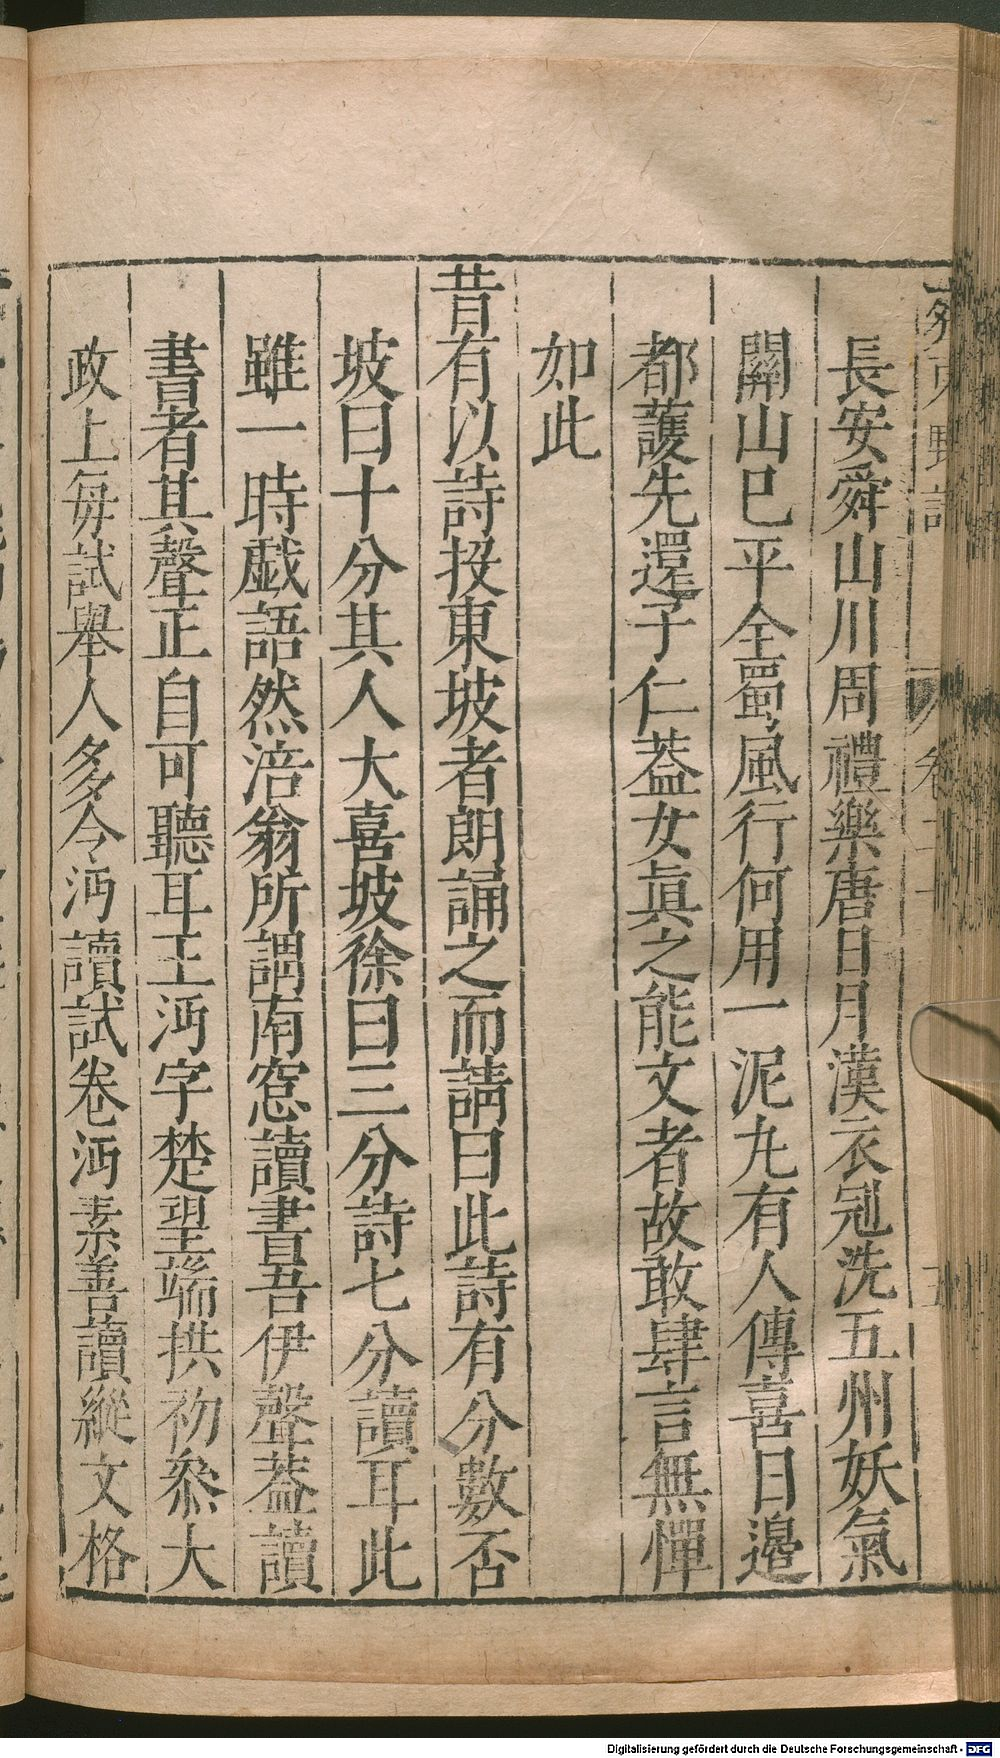 長安舜山川周禮樂唐日月漢衣冠洗五州妖氣
關山已平全蜀風行何用一泥丸有人傳喜日邉
都護先還子仁葢女眞之能文者故敢肆言無憚
如此
昔有以詩投東坡者朗誦之而請曰此詩有分數否
坡曰十分其人大喜坡徐曰三分詩七分讀耳此
雖一時戯語然涪翁所謂南窓讀書吾伊聲葢讀
書者其聲正自可聽耳王沔字楚望端拱初叅大
政上每試舉人多令沔讀試卷沔素善讀縱文格
Digitalisierung gefördert durch die Deutsche Forschungsgemeinschaft - DFG